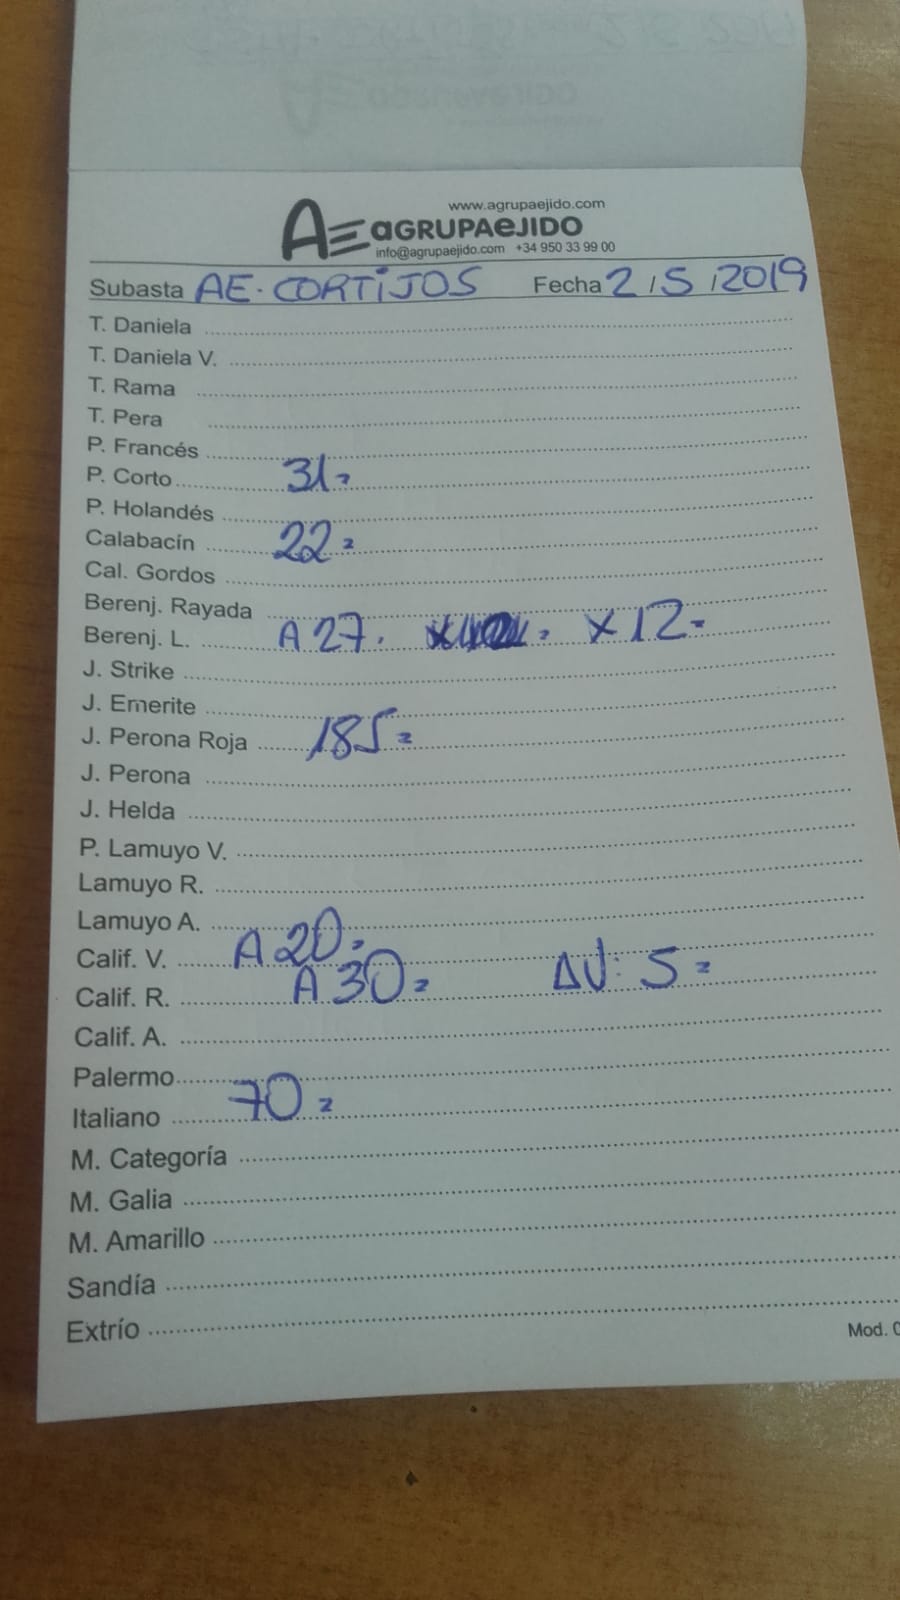 www.agrupaejido.com
AE aGRUPAeJIDO
info@agrupaejido.com +34 950 33 99 00
Subasta AE. CORTIJOS Fecha 2 / 5 / 2019
T. Daniela
T. Daniela V.
T. Rama
T. Pera
P. Francés
P. Corto 31
P. Holandés
Calabacín 22
Cal. Gordos
Berenj. Rayada
Berenj. L. A 27. X 12
J. Strike
J. Emerite
J. Perona Roja 185
J. Perona
J. Helda
P. Lamuyo V.
Lamuyo R.
Lamuyo A.
Calif. V. A 20
Calif. R. A 30 5
Calif. A.
Palermo
Italiano 70
M. Categoría
M. Galia
M. Amarillo
Sandía
Extrío
Mod.